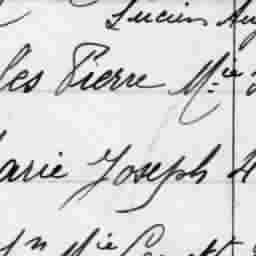 Lucien Aug
les Pierre Mie
arie Joseph 4
Mie